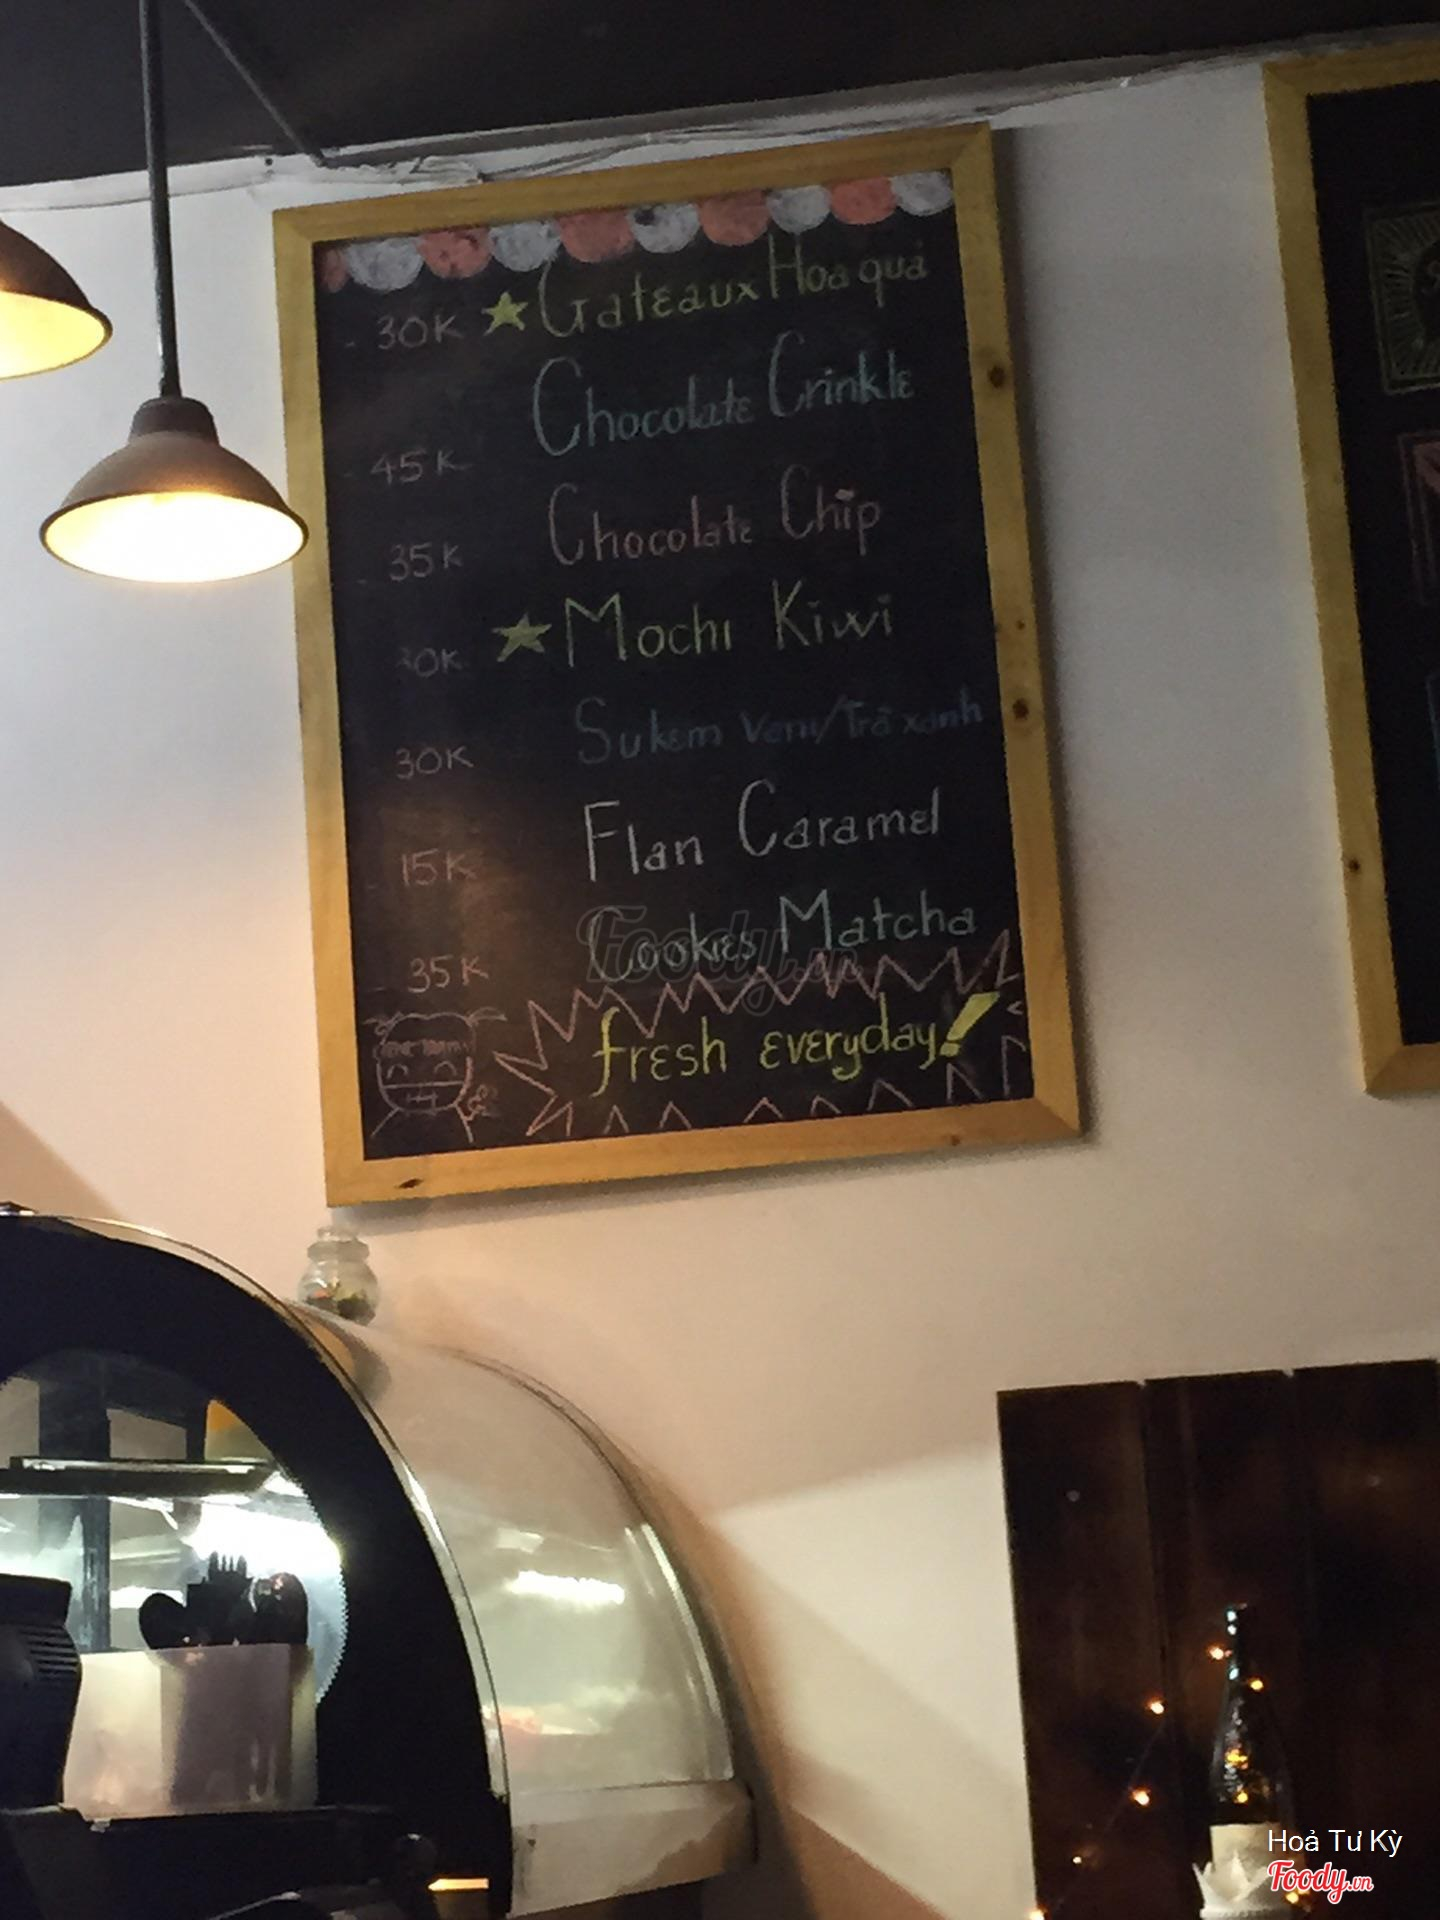 - 30K ★ Gateaux Hoa quả
Chocolate Crinkle
- 45K
Chocolate Chip
- 35K
★ Mochi Kiwi
30K
Sukem Vani/Trà xanh
30K
Flan Caramel
- 15K
Cookies Matcha
- 35K
fresh everyday!
Foody.vn
Hoả Tư Kỳ
Foody.vn